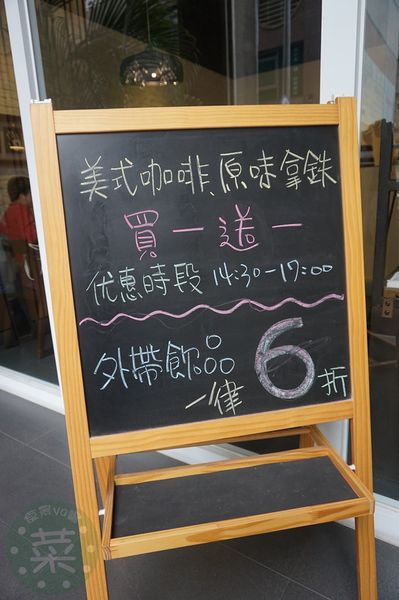 美式咖啡、原味拿鉄
買一送一
优惠時段 14:30-17:00
外帶飲品
一律 6 折
菜